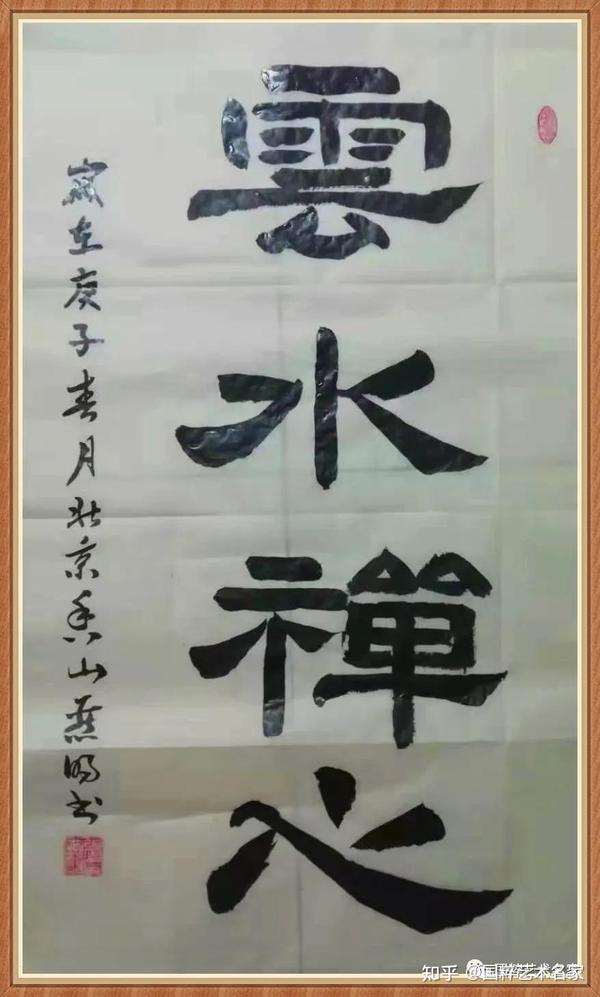 雲水禪心
嵗在庚子春月北京香山燕明书
知乎 @国粹艺术名家